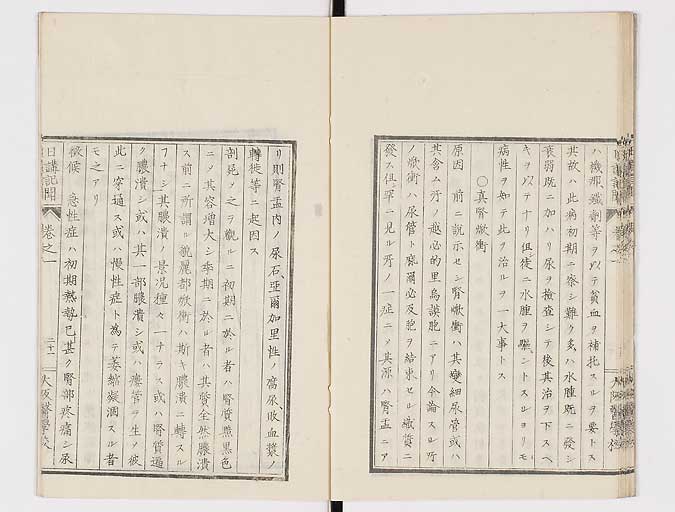 ハ機那、鐵劑等ヲ以テ貧血ヲ補托スルヲ要トス
其故ハ此病初期ニ察シ難ク多ハ水腫既ニ發シ
衰弱既ニ加ハリ尿ヲ檢査シテ後其治ヲ下スヘ
キヲ以テナリ但徒ニ水腫ヲ驅ントスルヨリモ
病性ヲ如テ此ヲ治ルヲ一大事トス
〇眞腎焮衝
原因 前ニ說示セシ腎焮衝ハ其變細尿管或ハ
其含ム所ノ越必的里烏謨胞ニアリ今論スル所
ノ焮衝ハ尿管ト麻爾必及胞ヲ結束セル織質ニ
發ス但罕ニ見ル所ノ一症ニメ其源ハ腎盂ニア
リ則腎盂內ノ尿石、亞爾加里性ノ腐尿、敗血漿ノ
轉徙等ニ起因ス
剖見メ之ヲ觀ルニ初期ニ於ル者ハ腎質黑色
ニメ其容增大シ季期ニ於ル者ハ其質全然膿潰
ス前ニ所謂ル貌麗都焮衝ハ斯キ膿潰ニ轉スル
ヿナシ其膿潰ノ景況種々一ナラス或ハ腎質遍
ク膿潰シ或ハ其一部膿潰シ或ハ瘻管ヲ生メ彼
此ニ穿通ス或ハ慢性症ト為テ萎縮凝涸スル者
モ之アリ
徵候 急性症ハ初期熱勢已甚ク腎部疼痛シ尿
日講記聞 卷之一 二十一 大阪醫學校